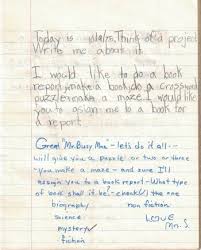 Today is      Think of a project
Write me about it.
I would like to do a book
report, make a book, do a crossword
puzzle, make a maze. I would like
you to asign me to a book for
a report.
Great "Mr. Busy Man" - let's do it all --
will give you a puzzle or two or three
- you make a maze - and sure I'll
assign you to a book report - What type
of book shall it be - check (✓) the one
biography non fiction
science
mystery
fiction
Love
Mrs. S.